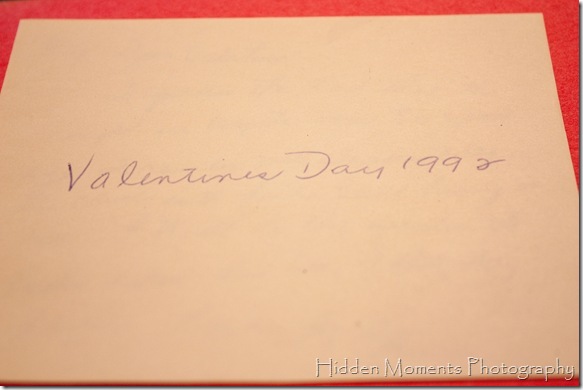 Valentines Day 1992
Hidden Moments Photography